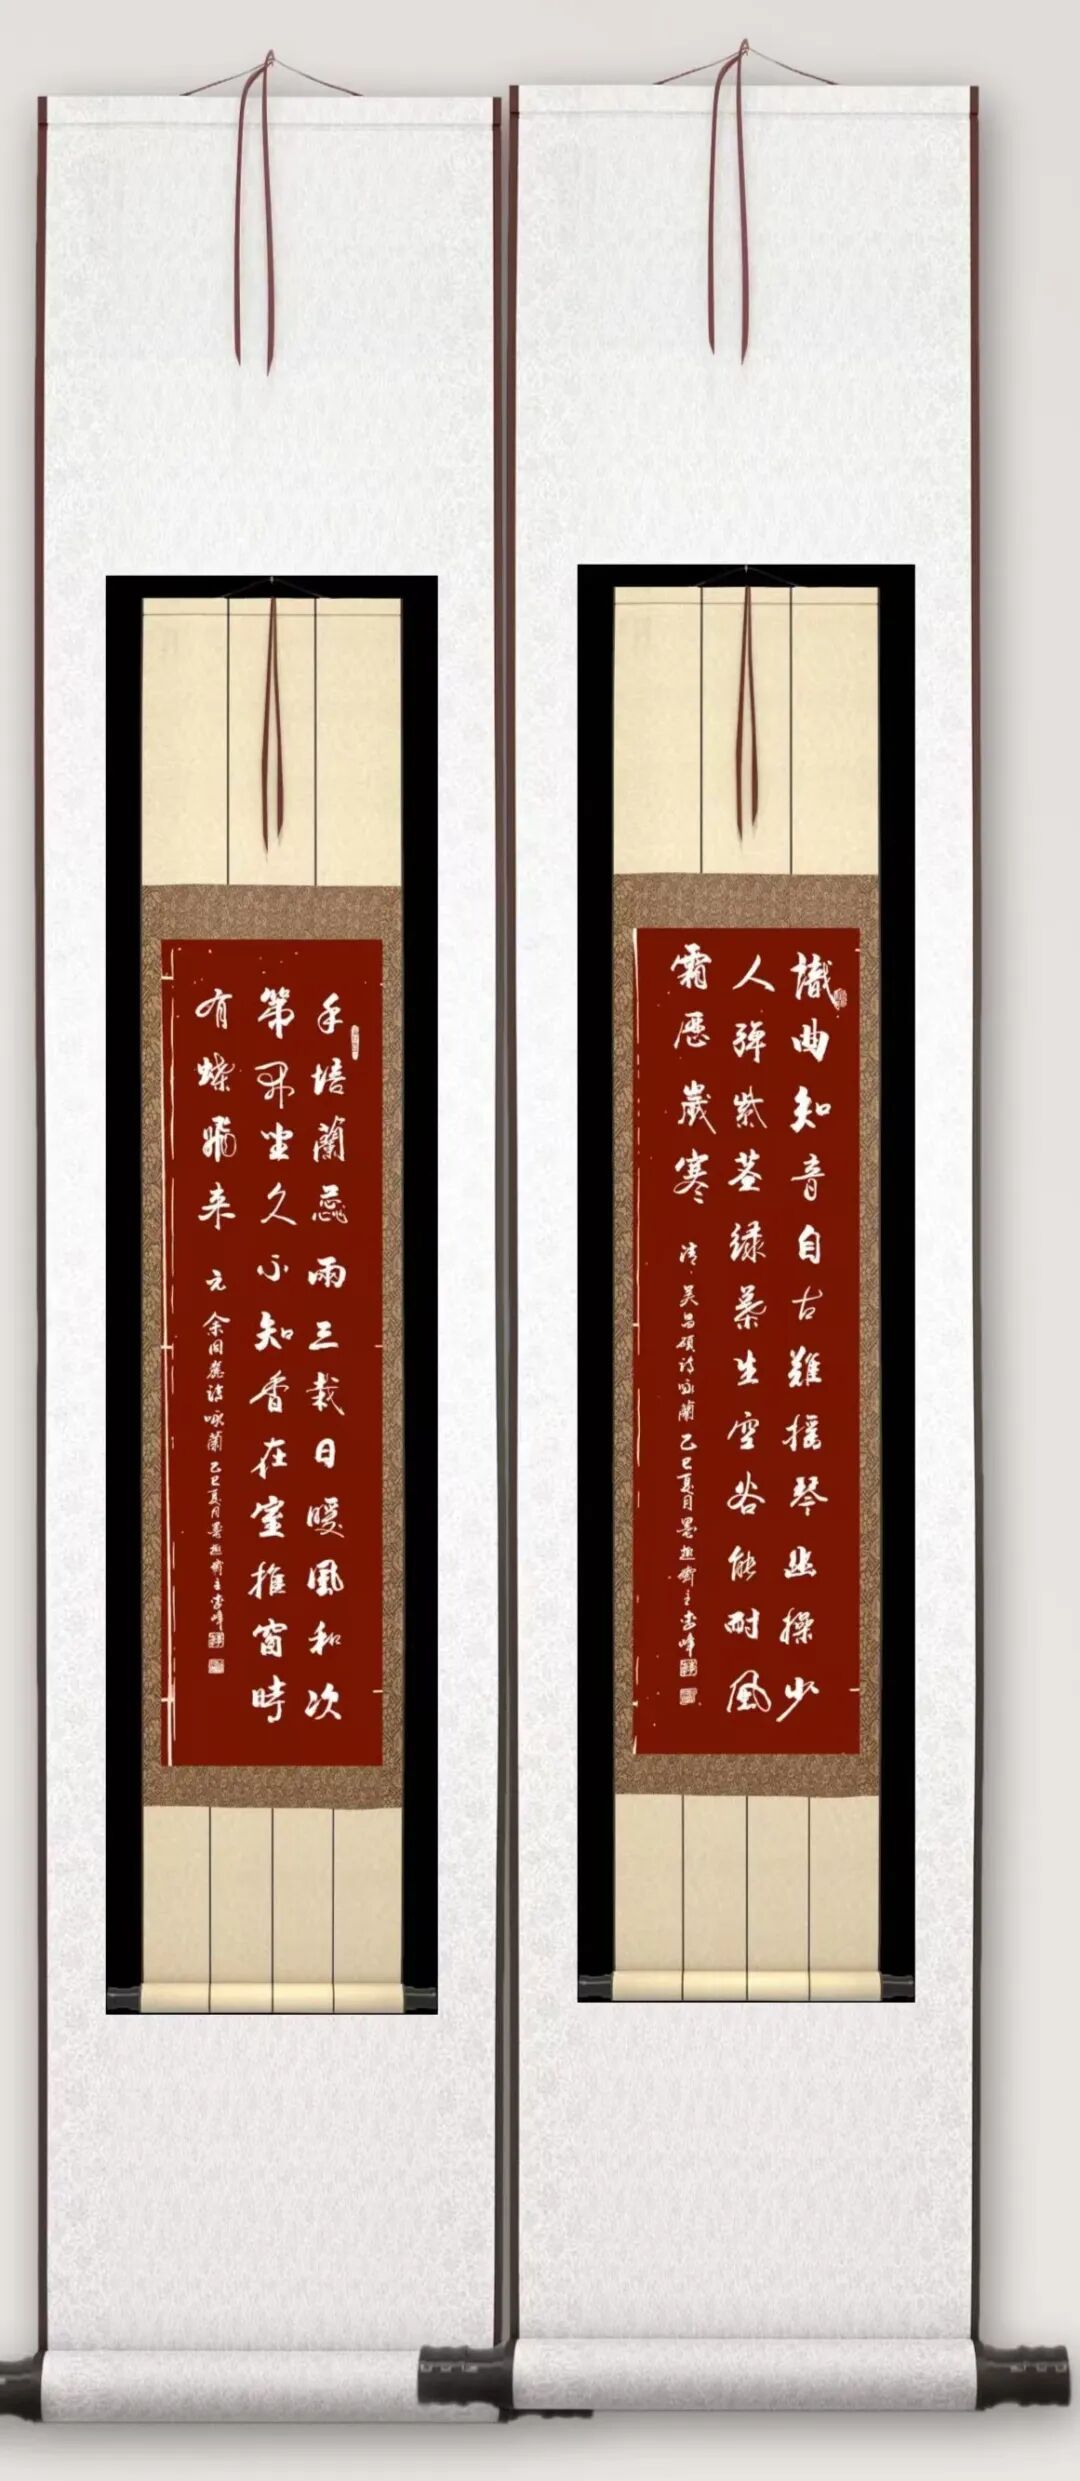 識曲知音自古難搖琴幽操少
人彈紫莖綠葉生空谷能耐風
霜歷歲寒 清 吴昌碩詩咏蘭 乙巳夏月墨趣齋主峰
手培蘭蕊雨三栽日暖風和次
第開坐久不知香在室推窗時
有蝶飛来 元 余同麓詩咏蘭 乙巳夏月墨趣齋主峰